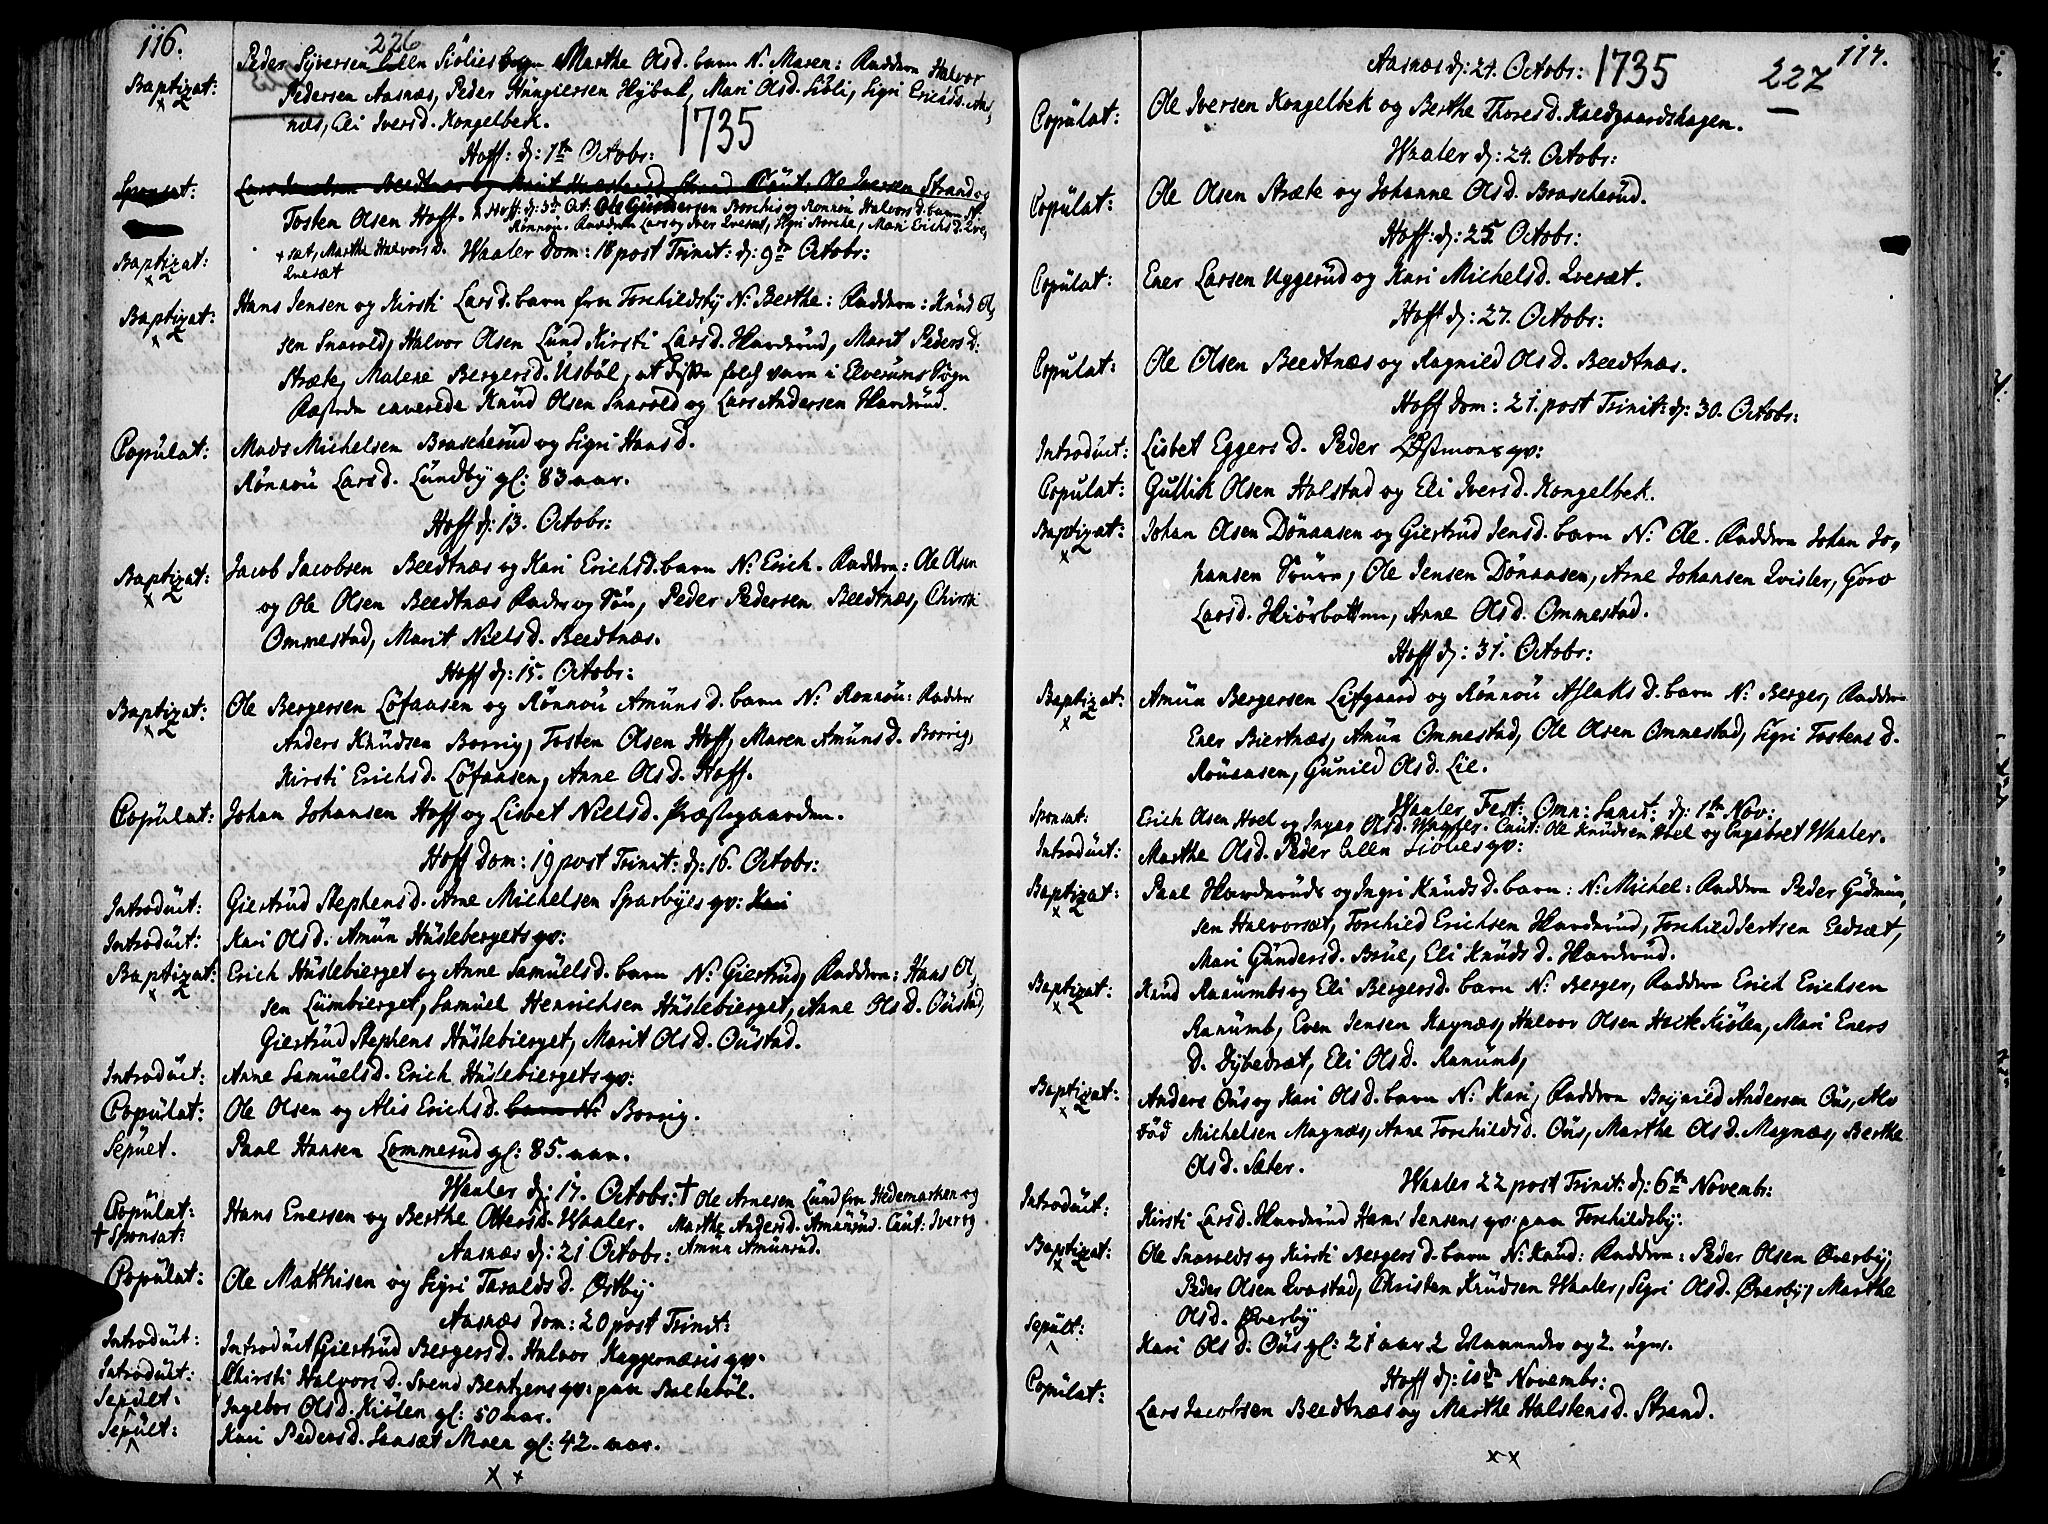 116.
226
Baptizat: Peder Syversen Lilln Siölies Marthe Olsd. barn N: Maren: Faddern Halvor
Pedersen Aasnæs, Peder Hüngiersen Hÿbak, Mari Olsd. Siöli, Sigri Ericsd. Aas,
næs, Eli Iversd. Kongelbek.
1735
Hoff: d: 1te Octobr:
Sponsat:
Ole Iversen Strand og
Tosten Olsen Hoff. Hoff: d: 3d Oct: Ole Gundersen Borchis og Rönnou Halvorsd. barn N:
Rönnou. Faddern Lars og Iver Qvesæt, Sigri Borche, Mari Erichsd. Qve,
Baptizat: + sæt, Marthe Halvorsd. Waaler Dom: 18 post Trinit: d: 9de Octobr:
Qvesæt
Baptizat: Hans Jensen og Kirsti Larsd. barn fra Torchildsby N: Berthe: Faddern: Knud Ol,
sen Snarold, Halvor Olsen Lund, Kirsti Larsd. Harderud, Marit Pedersd.
Stræte, Malene Bergersd. Usböl, at disse folch varn i Elverums Sogn
caverede Knud Olsen Snarold og Lars Andersen Harderud.
Copulat: Mads Michelsen Brascherud og Sigri Hansd.
Rönnou Larsd. Lundby gl: 83 aar.
Hoff d: 13. Octobr:
Baptizat: Jacob Jacobsen Beedtnæs og Kari Erichsd. barn N: Erich. Faddern: Ole Olsen
og Ole Olsen Beedtnæs Fader og Sön, Peder Pedersen Beedtnæs, Chirsti
Ommestad, Marit Nielsd. Beedtnæs.
Hoff d: 15. Octobr:
Baptizat: Ole Bergersen Löfaasen og Rönnou Amunsd. barn N: Rönnou: Fadder
Anders Knudsen Borrig, Tosten Olsen Hoff, Maren Amunsd. Borrig,
Kirsti Erichsd. Löfaasen, Anne Olsd. Hoff.
Copulat: Johan Johansen Hoff og Lisbet Nielsd. Præstegaarden.
Hoff Dom: 19 post Trinit: d: 16. Octobr:
Introduct: Giertrud Stephensd. Arne Michelsen Sparbyes qv: Kari
Introduct: Kari Olsd. Amun Huslebergets qv:
Baptizat: Erich Huslebierget og Anne Samuelsd. barn N: Giertrud, Faddern: Hans Ol,
sen Lumbierget, Samuel Henrichsen Huslebierget, Anne Olsd. Oustad,
Giertrud Stephens Huslebierget, Marit Olsd. Oustad.
Introduct: Anne Samuelsd. Erich Huslebiergets qv:
Copulat: Ole Olsen og Alis Erichsd. barn N: Borrig.
Sepult. Paal Hansen Lommerud gl: 85. aar.
Waaler d: 17. Octobr: † Ole Arnesen Lund fra Hedemarken og
Copulat: Hans Enersen og Berthe Ottersd. Waaler. Marthe Andersd. Amunrud. Caut: Iver og
† Sponsat: Amun Amunrud.
Aasnæs d: 21 Octobr:
Copulat: Ole Matthisen og Sigri Taraldsd. Östby
Aasnæs Dom: 20 post Trinit:
Introduct: Introduct Giertrud Bergersd. Halvor Keggernæsis qv.
Introduct: Chirsti Halvorsd. Svend Bentzens qv: paa Balteböl.
Sepult. Ingebor Olsd. Kiölen gl: 50 aar.
Sepult: Kari Pedersd. Sansæt Moen gl: 42. aar.
x x
117.
227
Aasnæs d: 24. Octobr: 1735
Copulat: Ole Iversen Kongelbek og Berthe Thoresd. Kaedgaardshagen.
Waaler d: 24. Octobr:
Copulat: Ole Olsen Stræte og Johanne Olsd. Brascherud.
Hoff: d: 25. Octobr:
Copulat: Ener Larsen Uggerud og Kari Michelsd. Qvesæt.
Hoff d: 27. Octobr:
Copulat: Ole Olsen Beedtnæs og Ragnild Olsd. Beedtnæs.
Hoff Dom: 21. post Trinit: d: 30. Octobr:
Introduct: Lisbet Eggersd. Peder Östmons qv:
Copulat: Gullik Olsen Halstad og Eli Iversd. Kongelbek.
Baptizat: Johan Olsen Dönaasen og Giertrud Jensd. barn N: Ole. Faddern Johan Jo,
hansen Svurn, Ole Jensen Dönaasen, Arne Johansen Qvisler, Goro
Larsd. Hiörbotten, Anne Olsd. Ommestad.
Hoff d: 31. Octobr:
Baptizat: Amun Bergersen Lifgaard og Rönnou Aslaksd. barn N: Berger, Faddern
Ener Biertnæs, Amun Ommestad, Ole Olsen Ommestad, Sigri Tostensd.
Rönaasen, Gunild Olsd. Lie.
Waaler Fest: Omn: Sanct: d: 1te Nov:
Sponsat: Erich Olsen Hoel og Inger Olsd. Waaler. Caut: Ole Knudsen Hoel og Engebret Waaler.
Introduct: Marthe Olsd. Peder Lilln Siölies qv:
Baptizat: Paal Harderuds og Ingri Knudsd. barn: N: Michel: Faddern Peder Gudmun,
sen Halvorsæt, Torchild Erichsen Harderud, Torchild Sertsen Eedsæt,
Mari Gundersd. Brue, Eli Knudsd. Harderud.
Baptizat: Knud Ranumbs og Eli Bergersd. barn N: Berger, Faddern Erich Erichsen
Ranumb, Even Jensen Kagnæs, Halvor Olsen Hack Kiölen, Mari Eners
d. Dybedræt, Eli Olsd. Ranumb,
Baptizat: Anders Ous og Kari Olsd. barn N: Kari, Faddern Brynild Andersen Ous, Alv
föd Michelsen Magnæs, Anne Torchildsd. Ous, Marthe Olsd. Magnæs, Berthe
Olsd. Sæter.
Waaler 22 post Trinit: d: 6te Novembr:
Introduct: Kirsti Larsd. Harderud Hans Jensens qv: paa Torchildsby.
Baptizat: Ole Snarolds og Kirsti Bergersd. barn N: Knud: Faddern: Peder Olsen Överby,
Peder Olsen Evastad, Christen Knudsen Waaler, Sigri Olsd. Överby, Marthe
Olsd. Överby
Sepult: Kari Olsd. Ous gl: 21 aar 2 Maaneder og 2. uger.
Hoff d: 10de Novembr:
Copulat: Lars Jacobsen Beedtnæs og Marthe Halstensd. Strand.
x x